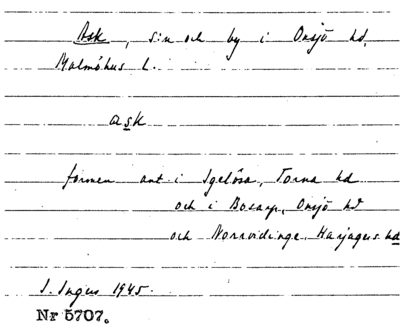 Ask, sn och by i Onsjö hd,
Malmöhus l.
ask
formen ant i Igelösa, Torna hd
och i Bosarp, Onsjö hd
och Norrvidinge Harjagers hd
I. Ingers 1945.
Nr 5707.